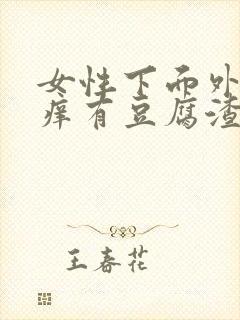 女性下面外
痒有豆腐渣
王春花